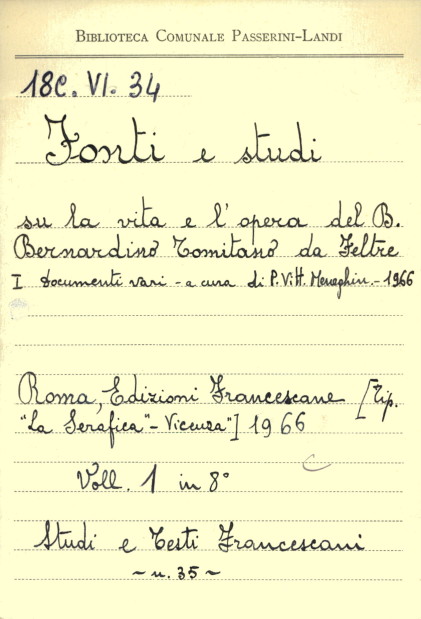 BIBLIOTECA COMUNALE PASSERINI-LANDI
18C. VI. 34
Fonti e studi
su la vita e l'opera del B.
Bernardino Tomitano da Feltre
I Documenti vari - a cura di P. Vitt. Meneghin. - 1966
Roma, Edizioni Francescane [Tip.
"La Serafica" - Vicenza"] 1966
Voll. 1 in 8°
Studi e Testi Francescani
~ n. 35 ~